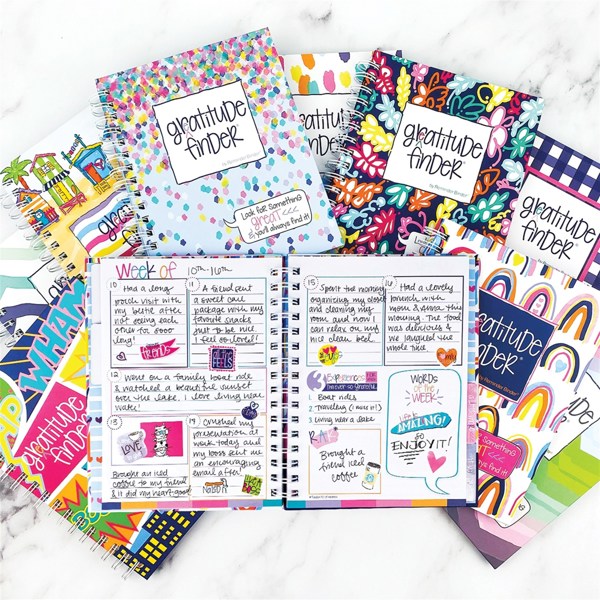 gratitude
finder®
by Reminder Binder®
Look for something
GREAT <<<
& you'll always find it!
gratitude
finder
gratitude
finder®
by Reminder Binder®
gratitude
finder®
gratitude
finder®
by Reminder Binder®
gratitude
finder
WHAM
Week of 10th-16th
10 Had a long
porch visit with
my bestie after
not seeing each
other for sooo
long!
friends
11 A friend sent
a sweet care
package with my
favorite snacks
just to be nice
I feel so loved!
all the
FEELS
12 Went on a family boat ride
& watched a beautiful sunset
over the lake. I love living near
water!
13
LOVE
Brought an iced
coffee to my friend
& it did my heart good
14 Crushed my
presentation at
work today and
my boss sent me
an encouraging
email after!
15 Spent the morning
organizing my closet
and cleaning my
room and now I
can relax on my
nice clean bed.
16 Had a lovely
brunch with
mom & sissa this
morning. The food
was delicious &
we laughed the
whole time.
3 Experiences
I'm ever so grateful
1 Boat rides
2 Traveling (I miss it!)
3 Living near a lake
Brought a
friend iced
coffee
WORDS
of the
WEEK
AMAZING!
so
ENJOY IT!